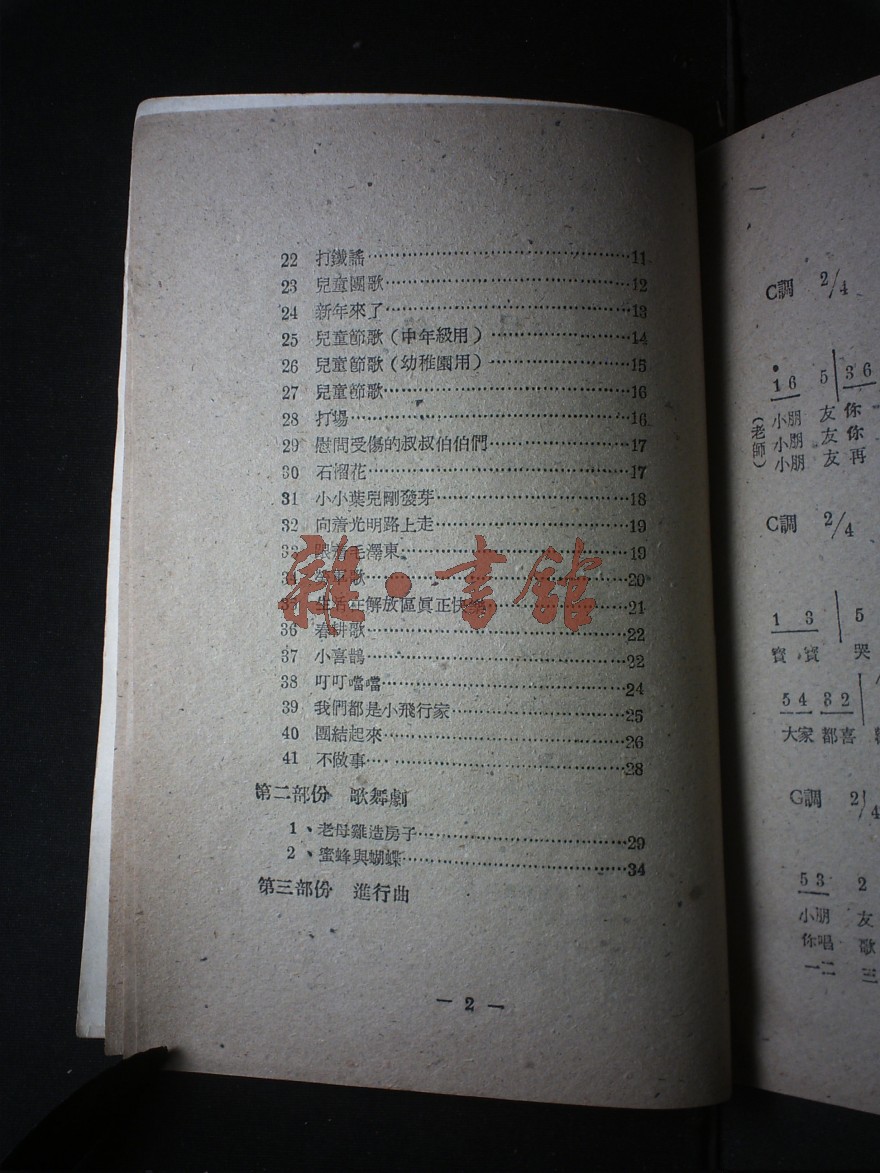 22 打鐵謠…11
23 兒童團歌…12
24 新年來了…13
25 兒童節歌(中年級用)…14
26 兒童節歌(幼稚園用)…15
27 兒童節歌…16
28 打場…16
29 慰問受傷的叔叔伯伯們…17
30 石溜花…17
31 小小葉兒剛發芽…18
32 向着光明路上走…19
33 跟着毛澤東…19
34 軍歌…20
35 生活在解放區眞正快樂…21
36 春耕歌…22
37 小喜鵲…22
38 叮叮噹噹…24
39 我們都是小飛行家…25
40 團結起來…26
41 不做事…28
第二部份 歌舞劇
1、老母雞造房子…29
2、蜜蜂與蝴蝶…34
第三部份 進行曲
— 2 —
雜·書館
C調 2/4
1 6 5 3 6
(老師)
小朋 友 你
小朋 友 你
小朋 友 再
C調 2/4
1 3 5
寶 寶 哭
5 4 3 2
大家 都喜
G調 2/4
5 3 2
小朋 友
你唱 歌
一二 三